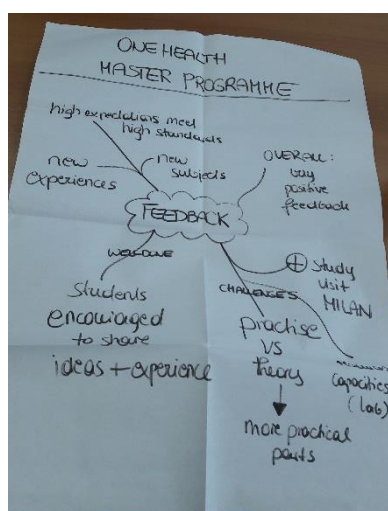 ONE HEALTH
MASTER PROGRAMME
high expectations meet
high standards
new
experiences
new
subjects
OVERALL:
very
positive
feedback
FEEDBACK
WELCOME
students
encouraged
to share
ideas + experience
CHALLENGES
+ study
visit
MILAN
practise
VS
theory
more practical
parts
capacities
(lab)